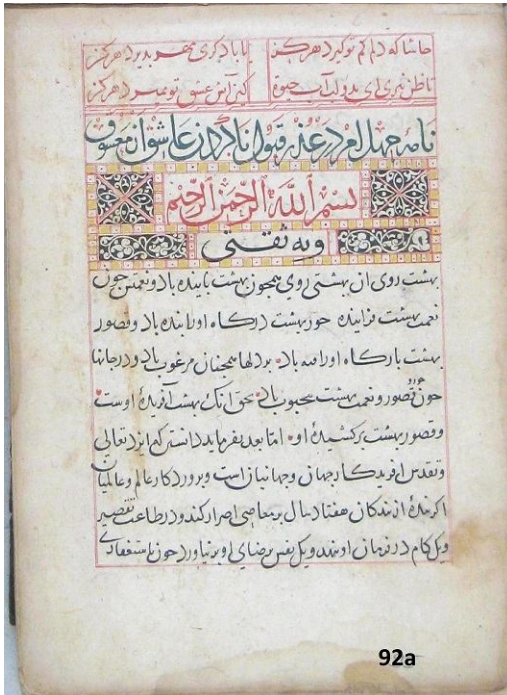 حاشا که دلم کم تو گیرد هرگز یا با دگری مهر پذیرد هرگز
تا ظن نبری ای بدو لب آب حیوة کین آتش عشق تو بمیرد هرگز
نامه چهل در عذر قبول ناکردن عاشق از معشوق
بسم الله الرحمن الرحیم
وبه ثقتی
بهشت روی ان بهشتی روی همچون بهشت باینده باد و نعمتش چون
نعمت بهشت فزاینده حور بهشت درکاه او را بنده باد و قصور
بهشت بارکاه او را باد بدلها همچنان مرغوب باد و در جانها
چون قصور و نعمت بهشت محبوب باد بحق انک بهشت آفریدهٔ اوست
و قصور بهشت برکشیدهٔ او اما بعد بفرماید دانستن که ایزد تعالی
و تقدس افریدکار جهان و جهانیان است و پروردکار عالم و عالمیان
اکر بندهٔ از بندکان هفتاد سال بر معاصی اصرار کند و در طاعت تقصیر
و یک کام در فرمان او ننهد و یک نفس برضای او برنیاورد چون باستغفاری
92a